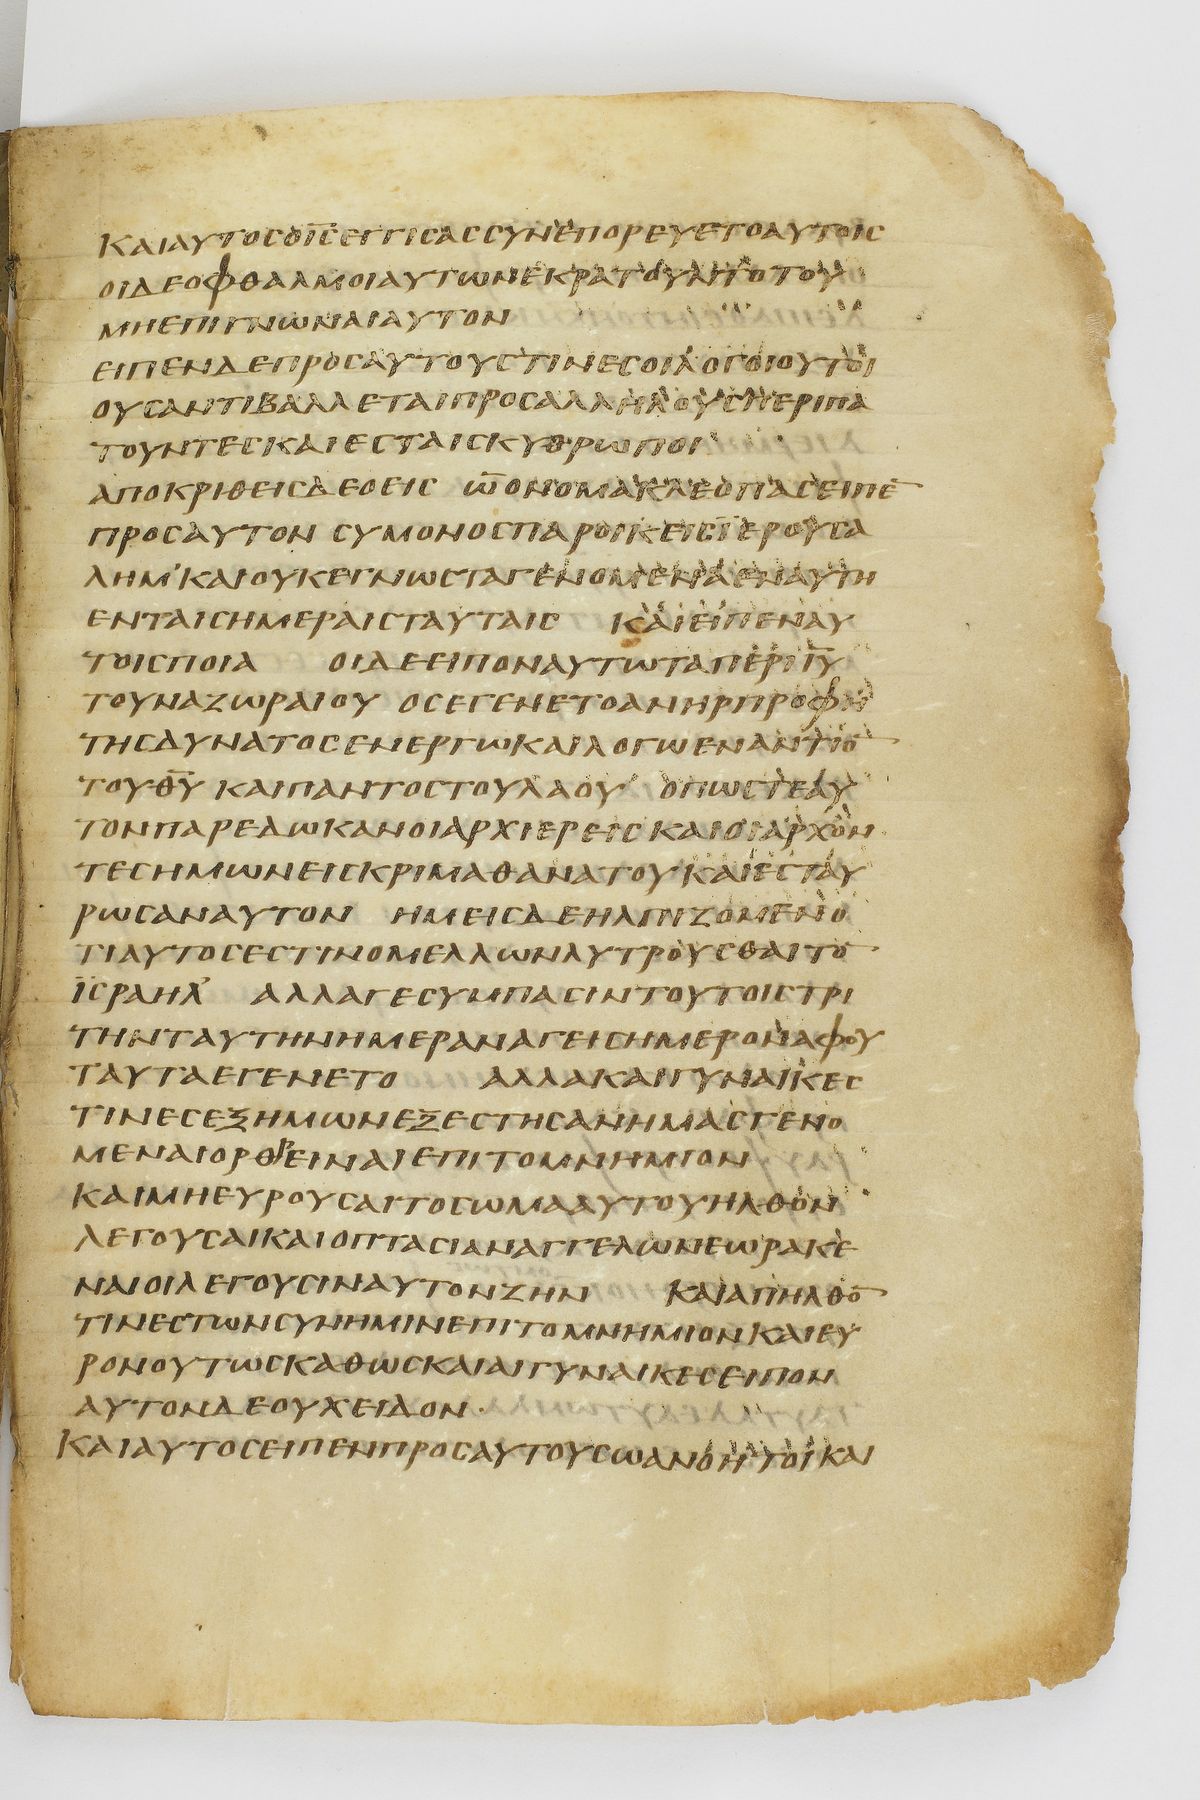 ΚΑΙΑΥΤΟΣΟΙ̅Σ̅ΕΓΓΙΣΑΣΣΥΝΕΠΟΡΕΥΕΤΟΑΥΤΟΙΣ
ΟΙΔΕΟΦΘΑΛΜΟΙΑΥΤΩΝΕΚΡΑΤΟΥΝΤΟΤΟΥ
ΜΗΕΠΙΓΝΩΝΑΙΑΥΤΟΝ
ΕΙΠΕΝΔΕΠΡΟΣΑΥΤΟΥΣΤΙΝΕΣΟΙΛΟΓΟΙΟΥΤΟΙ
ΟΥΣΑΝΤΙΒΑΛΛΕΤΑΙΠΡΟΣΑΛΛΗΛΟΥΣΠΕΡΙΠΑ
ΤΟΥΝΤΕΣΚΑΙΕΣΤΑΙΣΚΥΘΡΩΠΟΙ
ΑΠΟΚΡΙΘΕΙΣΔΕΟΕΙΣ Ω̅ΟΝΟΜΑΚΛΕΟΠΑΣΕΙΠΕ̅
ΠΡΟΣΑΥΤΟΝ ΣΥΜΟΝΟΣΠΑΡΟΙΚΕΙΣΪΕΡΟΥΣΑ
ΛΗΜ᾽ΚΑΙΟΥΚΕΓΝΩΣΤΑΓΕΝΟΜΕΝΑΕΝΑΥΤΗ
ΕΝΤΑΙΣΗΜΕΡΑΙΣΤΑΥΤΑΙΣ ΚΑΙΕΙΠΕΝΑΥ
ΤΟΙΣΠΟΙΑ ΟΙΔΕΕΙΠΟΝΑΥΤΩΤΑΠΕΡΙΙ̅Υ̅
ΤΟΥΝΑΖΩΡΑΙΟΥ ΟΣΕΓΕΝΕΤΟΑΝΗΡΠΡΟΦΗ
ΤΗΣΔΥΝΑΤΟΣΕΝΕΡΓΩΚΑΙΛΟΓΩΕΝΑΝΤΙΟ̅
ΤΟΥΘ̅Υ̅ ΚΑΙΠΑΝΤΟΣΤΟΥΛΑΟΥ ΟΠΩΣΤΕΑΥ
ΤΟΝΠΑΡΕΔΩΚΑΝΟΙΑΡΧΙΕΡΕΙΣΚΑΙΟΙΑΡΧΟΝ
ΤΕΣΗΜΩΝΕΙΣΚΡΙΜΑΘΑΝΑΤΟΥΚΑΙΕΣΤΑΥ
ΡΩΣΑΝΑΥΤΟΝ ΗΜΕΙΣΔΕΗΛΠΙΖΟΜΕΝΟ
ΤΙΑΥΤΟΣΕΣΤΙΝΟΜΕΛΛΩΝΛΥΤΡΟΥΣΘΑΙΤΟ̅
ΪΣΡΑΗΛ᾽ ΑΛΛΑΓΕΣΥΜΠΑΣΙΝΤΟΥΤΟΙΣΤΡΙ
ΤΗΝΤΑΥΤΗΝΗΜΕΡΑΝΑΓΕΙΣΗΜΕΡΟΝΑΦΟΥ
ΤΑΥΤΑΕΓΕΝΕΤΟ ΑΛΛΑΚΑΙΓΥΝΑΙΚΕΣ
ΤΙΝΕΣΕΞΗΜΩΝΕΞΕΣΤΗΣΑΝΗΜΑΣΓΕΝΟ
ΜΕΝΑΙΟΡΘΡΕΙΝΑΙΕΠΙΤΟΜΝΗΜΙΟΝ
ΚΑΙΜΗΕΥΡΟΥΣΑΙΤΟΣΩΜΑΑΥΤΟΥΗΛΘΟΝ
ΛΕΓΟΥΣΑΙΚΑΙΟΠΤΑΣΙΑΝΑΓΓΕΛΩΝΕΩΡΑΚΕ
ΝΑΙΟΙΛΕΓΟΥΣΙΝΑΥΤΟΝΖΗΝ ΚΑΙΑΠΗΛΘΟ̅
ΤΙΝΕΣΤΩΝΣΥΝΗΜΙΝΕΠΙΤΟΜΝΗΜΙΟΝΚΑΙΕΥ
ΡΟΝΟΥΤΩΣΚΑΘΩΣΚΑΙΑΙΓΥΝΑΙΚΕΣΕΙΠΟΝ
ΑΥΤΟΝΔΕΟΥΧΕΙΔΟΝ·
ΚΑΙΑΥΤΟΣΕΙΠΕΝΠΡΟΣΑΥΤΟΥΣΩΑΝΟΗΤΟΙΚΑΙ